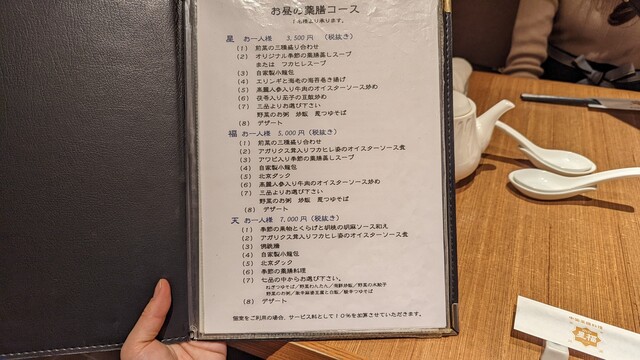 お昼の薬膳コース
1名様より承ります。
星 お一人様 3,500円 (税抜き)
(1) 前菜の三種盛り合わせ
(2) オリジナル季節の薬膳蒸しスープ
または フカヒレスープ
(3) 自家製小籠包
(4) エリンギと海老の海苔巻き揚げ
(5) 高麗人参入り牛肉のオイスターソース炒め
(6) 茯苓入り茄子の豆鼓炒め
(7) 三品よりお選び下さい
野菜のお粥 炒飯 葱つゆそば
(8) デザート
福 お一人様 5,000円(税抜き)
(1) 前菜の三種盛り合わせ
(2) アガリクス茸入りフカヒレ姿のオイスターソース煮
(3) アワビ入り季節の薬膳蒸しスープ
(4) 自家製小籠包
(5) 北京ダック
(6) 高麗人参入り牛肉のオイスターソース炒め
(7) 三品よりお選び下さい
野菜のお粥 炒飯 葱つゆそば
(8) デザート
天 お一人様 7,000円(税抜き)
(1) 季節の果物とくらげと胡桃の胡麻ソース和え
(2) アガリクス茸入りフカヒレ姿のオイスターソース煮
(3) 佛跳牆
(4) 自家製小籠包
(5) 北京ダック
(6) 季節の薬膳料理
(7) 七品の中からお選び下さい。
ねぎつゆそば/野菜わんたん/海鮮炒飯/野菜の水餃子
野菜のお粥/激辛麻婆豆腐と白飯/酸辛つゆそば
(8) デザート
個室をご利用の場合、サービス料として10%を加算させていただきます。